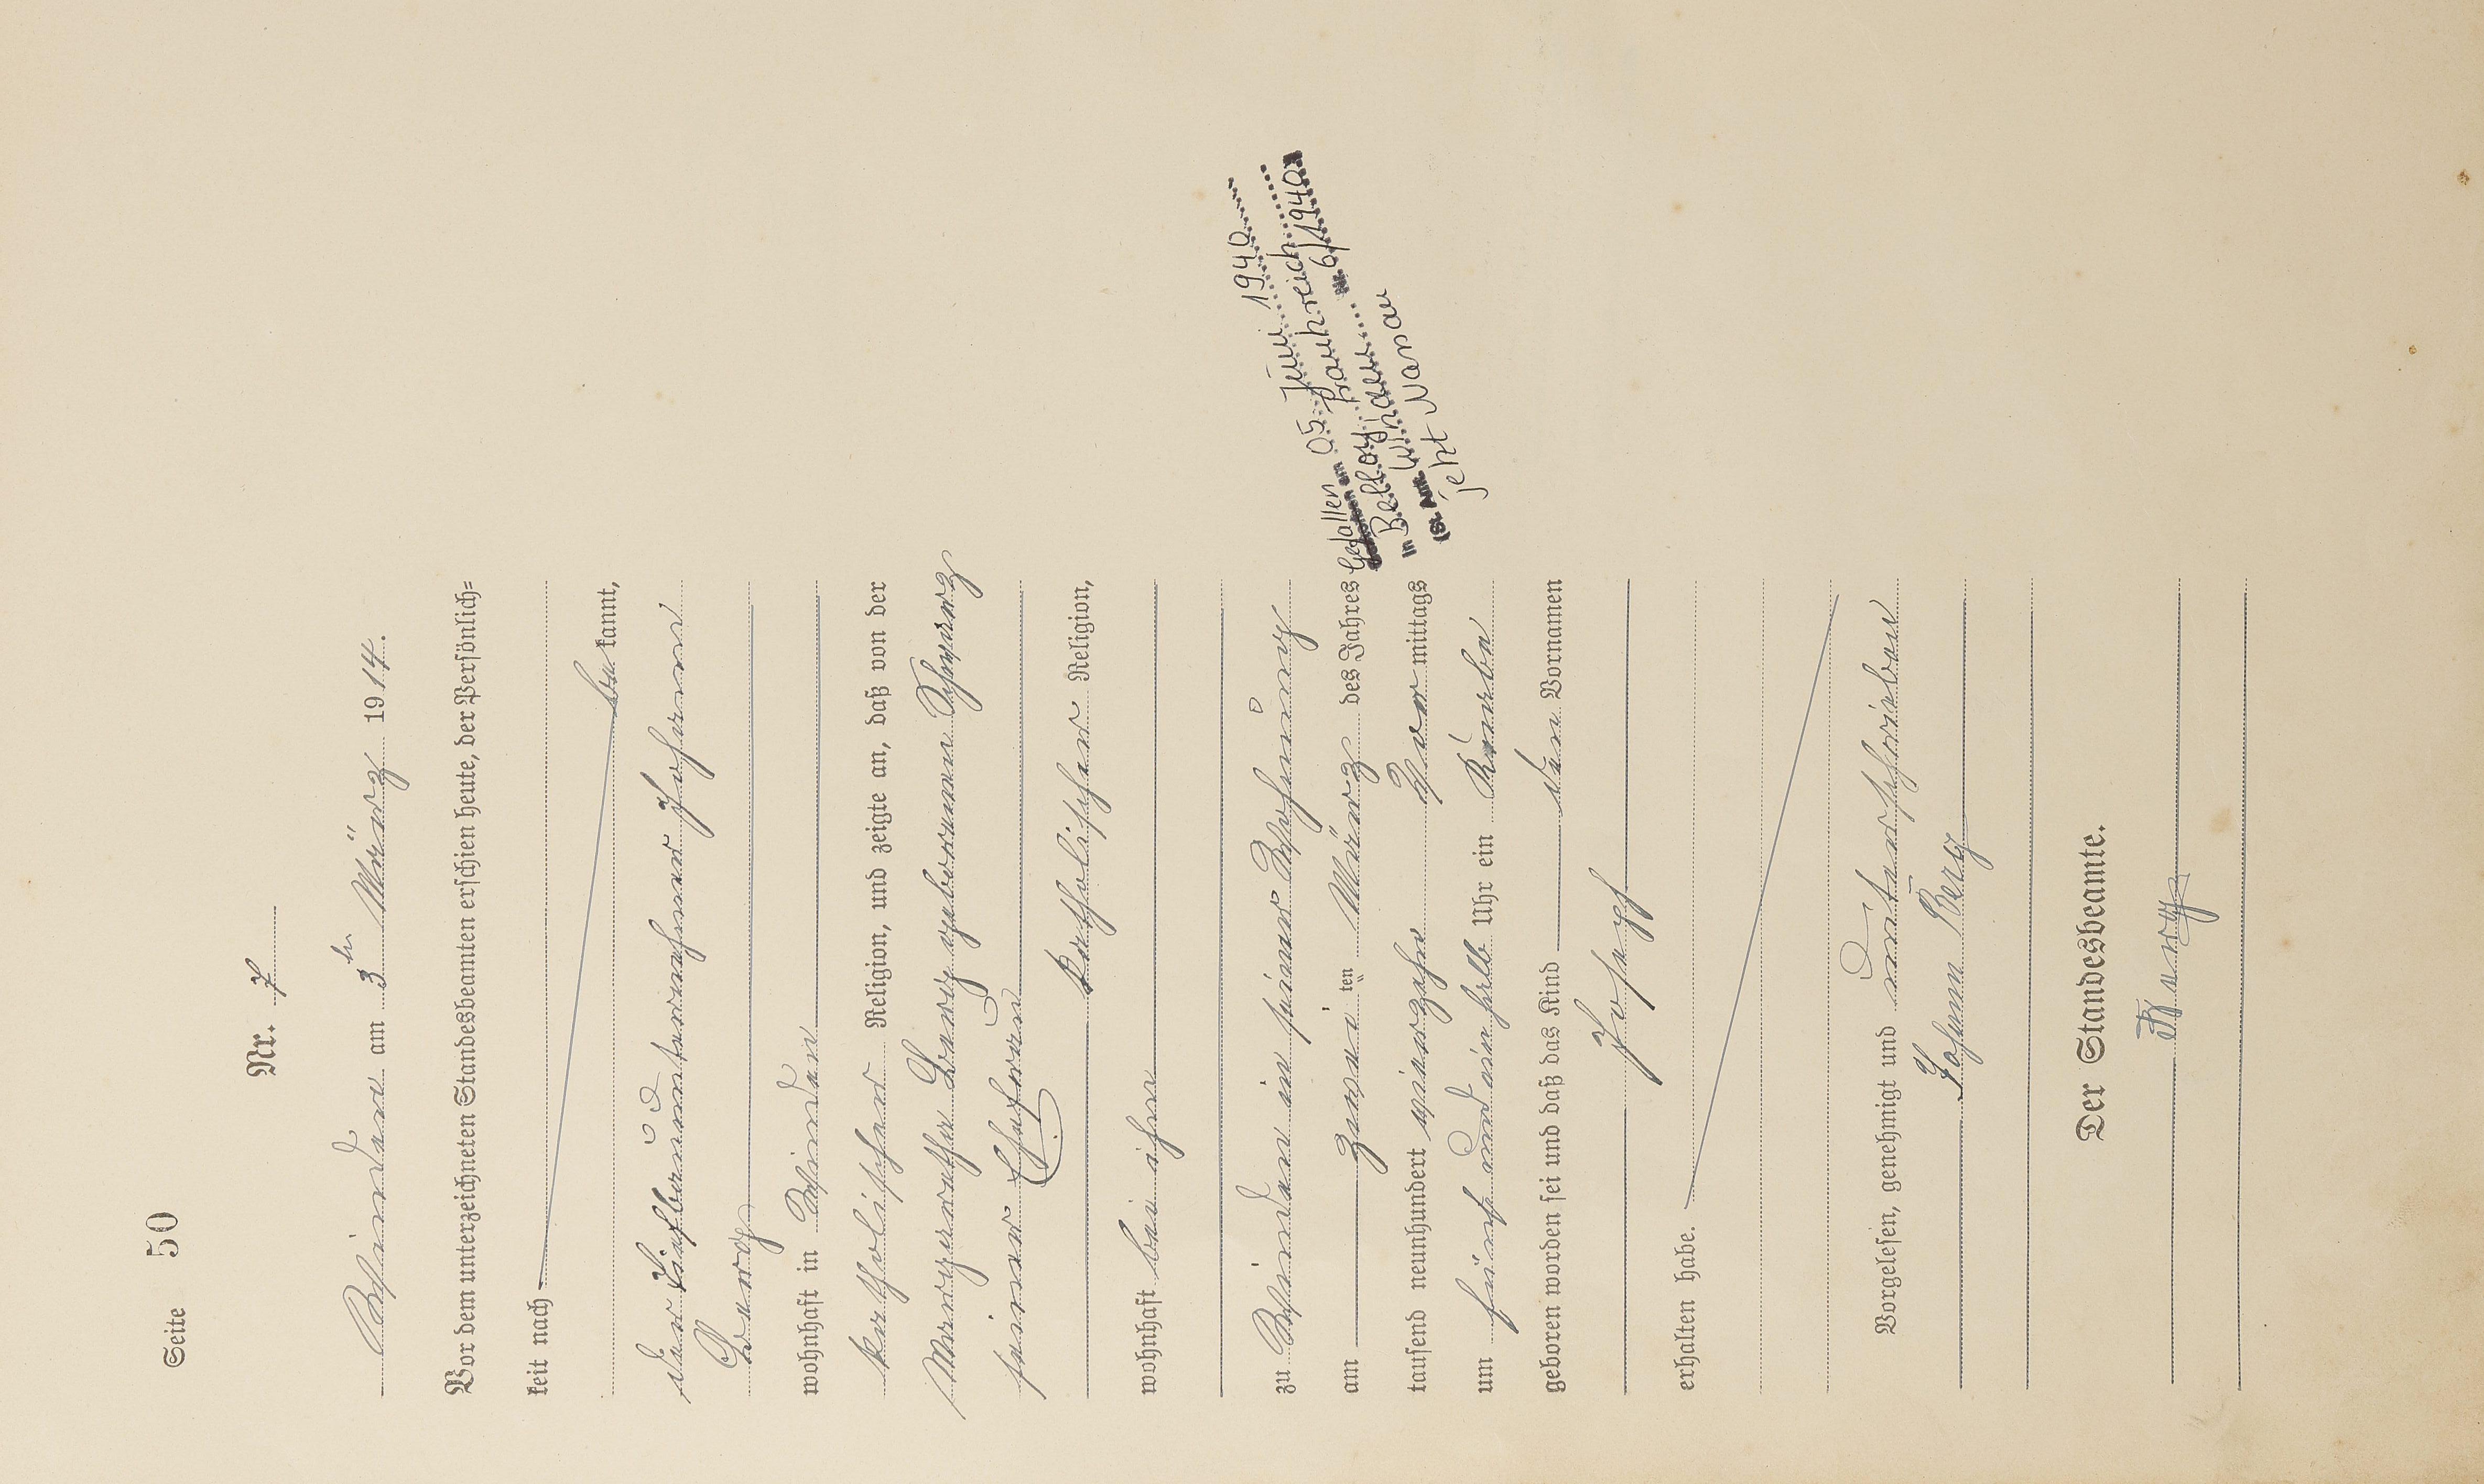 Seite 50
Nr. 7
Winden am 3ten März 1914.
Vor dem unterzeichneten Standesbeamten erschien heute, der Persönlich=
keit nach
be kannt,
der Tiefbauunternehmer Johann
Berg
wohnhaft in Winden
katholischer Religion, und zeigte an, daß von der
Margaretha Berg geborenen Schwarz
seiner Ehefrau
katholischer Religion,
wohnhaft bei ihm
zu Winden in seiner Wohnung
am zwei ten März des Jahres
tausend neunhundert vierzehn Vor mittags
um fünf und ein halb Uhr ein Knabe
geboren worden sei und daß das Kind den Vornamen
Josef
erhalten habe.
Vorgelesen, genehmigt und unterschrieben
Johann Berg
Der Standesbeamte.
Gefallen am 05. Juni 1940
in Belloy, Frankreich
(St. Amt Winden Nr. 6/1940)
jetzt Nassau